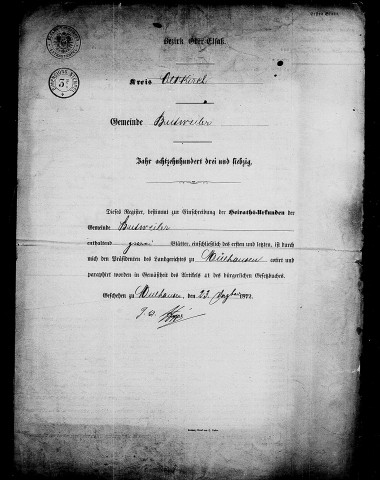 Erstes Blatt.
Bezirk Ober-Elsaß.
Kreis Altkirch
Gemeinde Buxweiler
Jahr achtzehnhundert drei und siebzig.
Dieses Register, bestimmt zur Einschreibung der Heiraths-Urkunden der
Gemeinde Buxweiler
enthaltend zwei Blätter, einschließlich des ersten und letzten, ist durch
mich den Präsidenten des Landgerichtes zu Mülhausen cotirt und
paraphirt worden in Gemäßheit des Artikels 41 des bürgerlichen Gesetzbuches.
Geschehen zu Mülhausen, den 23. 1872.